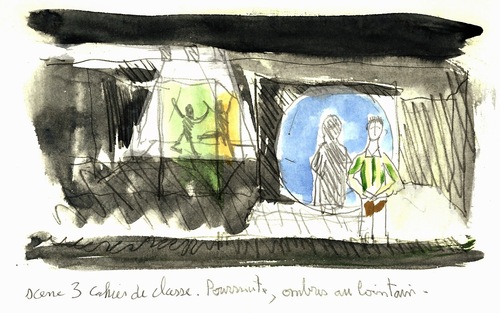 scene 3 cahier de classe. Poursuite, ombres au lointain -